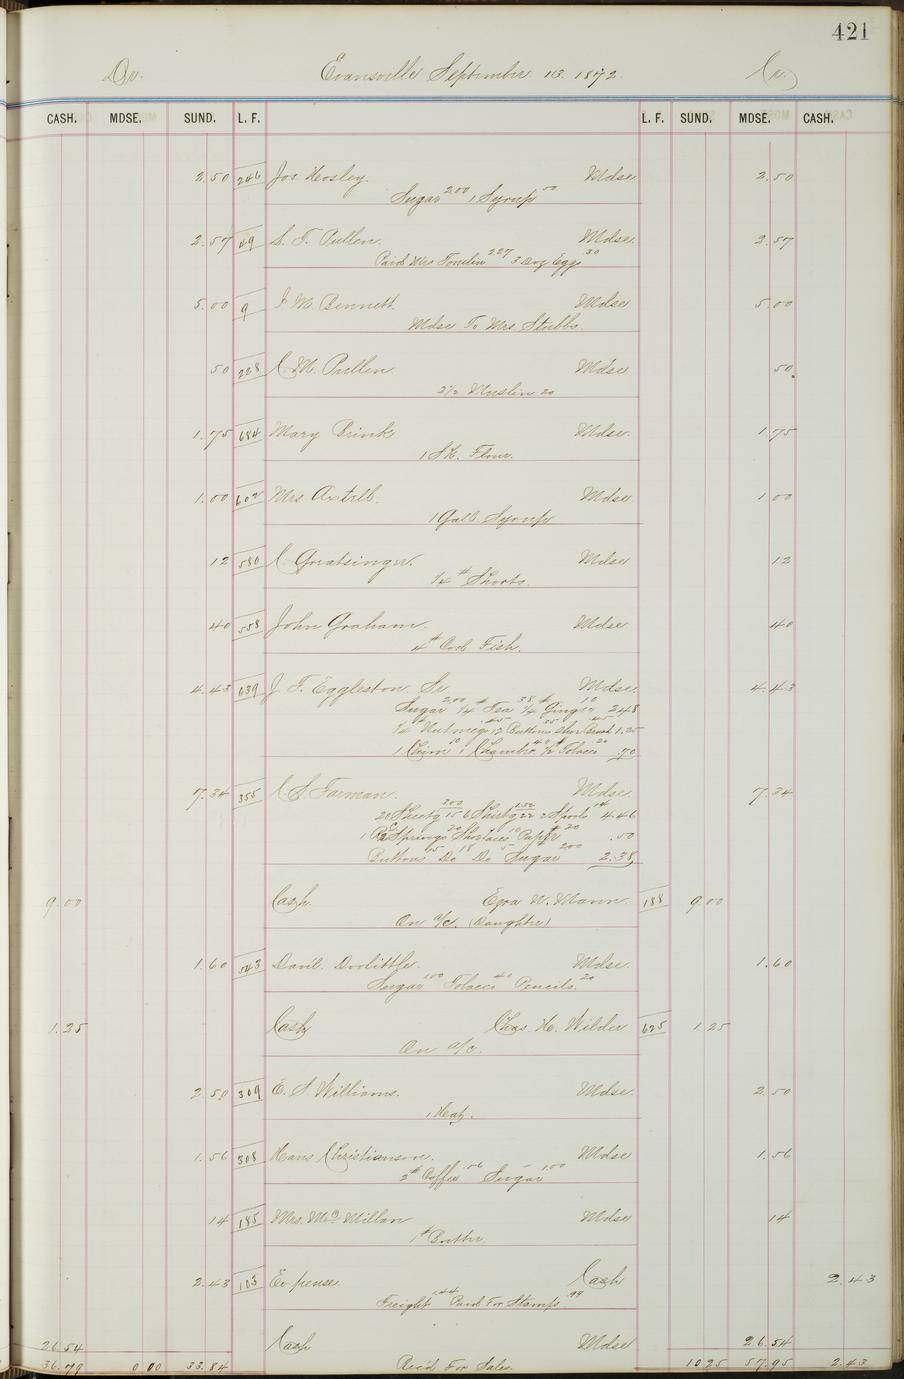 421
Dr. Evansville September 13. 1872. Cr.
CASH. MDSE. SUND. L. F. L. F. SUND. MDSE. CASH.
2.50 246 Jos Hosley. Mdse. 2.50
Sugar 2.00 1 Syrup 50
2.57 49 S. T. Pullen. Mdse. 2.57
Paid Mrs Tomlin 2.27 3 Doz Eggs 30
5.00 9 I. M. Bennett. Mdse 5.00
Mdse To Mrs Stubbs.
50 228 C. M. Pullen. Mdse 50.
2 1/2 Muslin 20
1.75 684 Mary Brink Mdse. 1.75
1 Sk. Flour.
1.00 602 Mrs Mdse 1.00
1 Gall Syrup
12 580 C. Greatsinger. Mdse 12
1/4 # Shorts.
40 558 John Graham. Mdse. 40
4 # Cod Fish.
4.43 639 J. T. Eggleston. Sr. Mdse. 4.43
Sugar 2.00 1/4 # Tea 38 1/4 # Ginger 10 2.48
1/4 # Nutmegs 45 12 Buttons 35 Shoe Brush 45 1.25
1 10 1 40 1/2 # Tobacco 20 .70
7.34 355 C. S. Farman. Mdse. 7.34
20 Sheetg 3.00 15 6 Shirtg 1.32 22 2 Spools 14 4.46
1 Springs 20 Shoelaces 10 Pepper 20 .50
Buttons 15 Do 18 Do 5 Sugar 2.00 2.38
9.00 Cash. Ezra W. Mann. 188 9.00
On a/c. (Daughter)
1.60 543 Davil. Doolittle. Mdse. 1.60
Sugar 1.00 Tobacco 40 Pencils. 20
1.25 Cash Chas. H. Wilder 625 1.25
On a/c.
2.50 309 E. S. Williams. Mdse. 2.50
1 Hat.
1.56 308 Hans Christianson. Mdse 1.56
2 # Coffee .56 Sugar 1.00
14 185 Mrs. McMillan Mdse 14
1 # Butter.
2.43 103 Expense. Cash 2.43
Freight 1.44 Paid For Stamps .99
26.54 Cash Mdse 26.54
36.79 0 00 33.84 Rec'd For Sales. 10.25 57.95 2.43